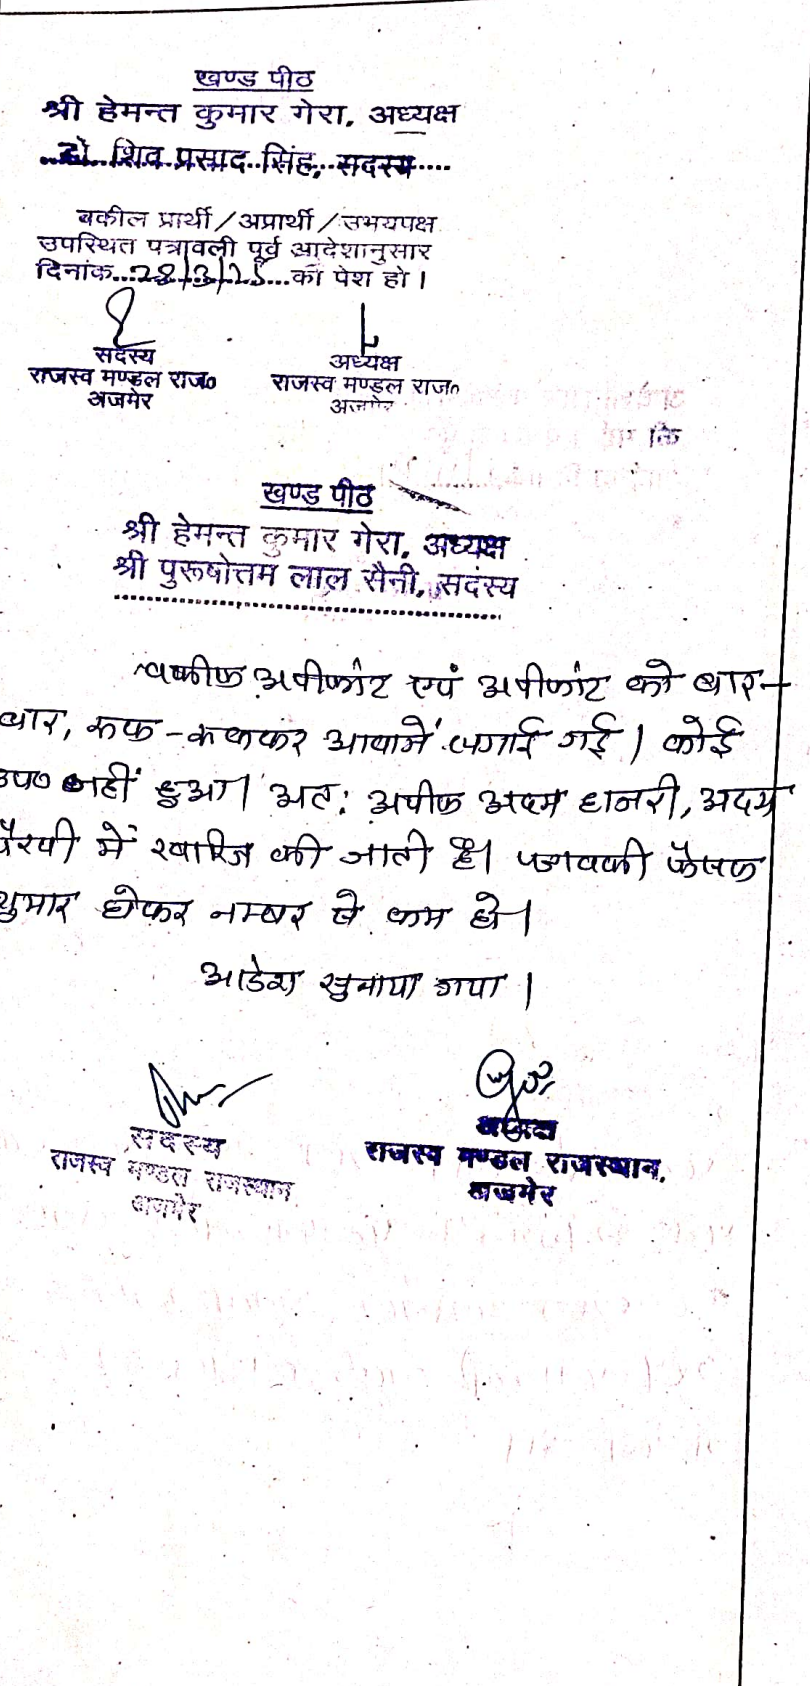 खण्ड पीठ
श्री हेमन्त कुमार गेरा, अध्यक्ष
डॉ शिव प्रसाद सिंह, सदस्य
वकील प्रार्थी/अप्रार्थी/उभयपक्ष
उपस्थित पत्रावली पूर्व आदेशानुसार
दिनांक 28/3/25 को पेश हो।
सदस्य
राजस्व मण्डल राज०
अजमेर
अध्यक्ष
राजस्व मण्डल राज०
अजमेर
खण्ड पीठ
श्री हेमन्त कुमार गेरा, अध्यक्ष
श्री पुरूषोत्तम लाल सैनी, सदस्य
वकील अपीलांट एवं अपीलांट को बार-
बार, रूक-रूककर आवाजें लगाई गई। कोई
उप० नहीं हुआ। अतः अपील अदम हाजरी, अदम
पैरवी में खारिज की जाती है। पत्रावली फैसल
शुमार होकर नम्बर से कम हो।
आदेश सुनाया गया।
सदस्य
राजस्व मण्डल राजस्थान
अजमेर
अध्यक्ष
राजस्व मण्डल राजस्थान,
अजमेर